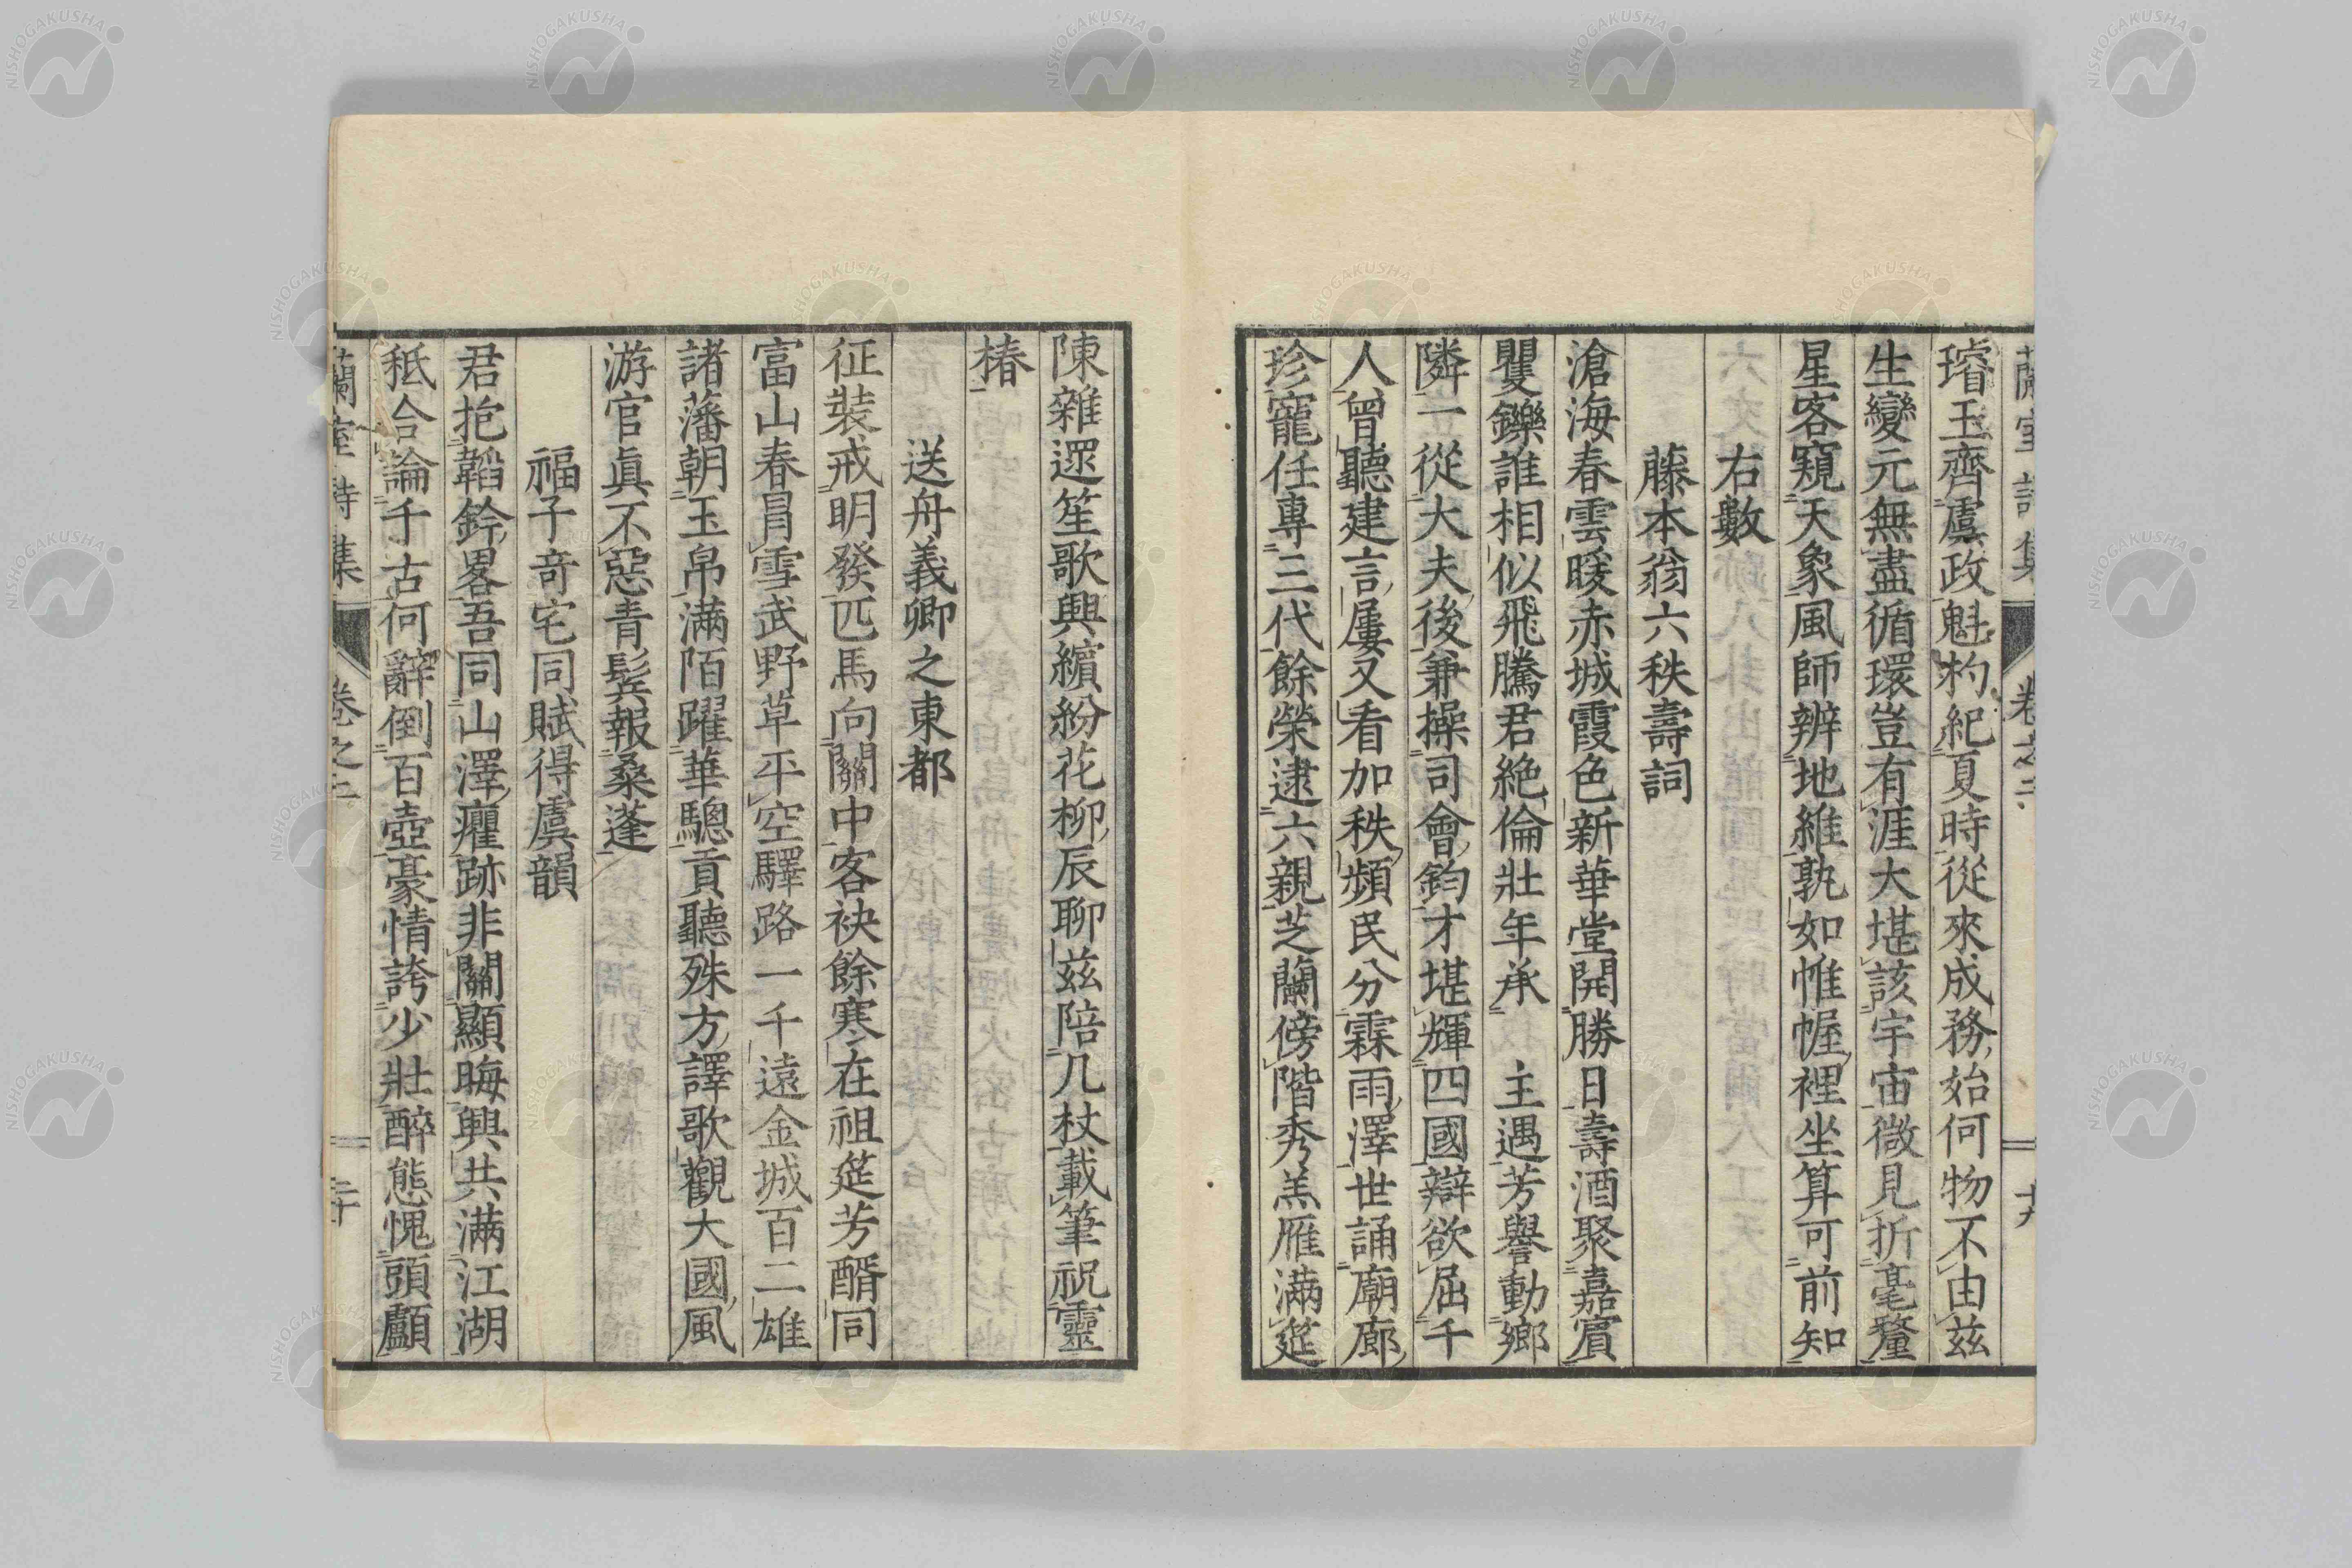 蘭室詩集 卷之二 十九
璿玉齊虞政魁杓紀夏時從來成務始何物不由茲
生變元無盡循環豈有涯大堪該宇宙微見折毫釐
星客窺天象風師辨地維孰如帷幄裡坐算可前知
右數
藤本翁六秩壽詞
滄海春雲暖赤城霞色新華堂開勝日壽酒聚嘉賓
矍鑠誰相似飛騰君絶倫壯年承 主遇芳譽動鄉
隣一從大夫後兼操司會鈞才堪輝四國辯欲屈千
人曾聽建言屢又看加秩頻民分霖雨澤世誦廟廊
珍寵任專三代餘榮逮六親芝蘭傍階秀羔雁滿筵
陳雜遝笙歌興繽紛花柳辰聊茲陪几杖載筆祝靈
椿
送舟義卿之東都
征裝戒明發匹馬向關中客袂餘寒在祖筵芳醑同
富山春冐雪武野草平空驛路一千遠金城百二雄
諸藩朝玉帛滿陌躍華驄貢聽殊方譯歌觀大國風
游官眞不惡青鬂報桑蓬
福子奇宅同賦得虞韻
君抱韜鈐畧吾同山澤癯跡非關顯晦興共滿江湖
秪合論千古何辭倒百壺豪情誇少壯醉態愧頭顱
蘭室詩集 卷之二 二十
NISHOGAKUSHA